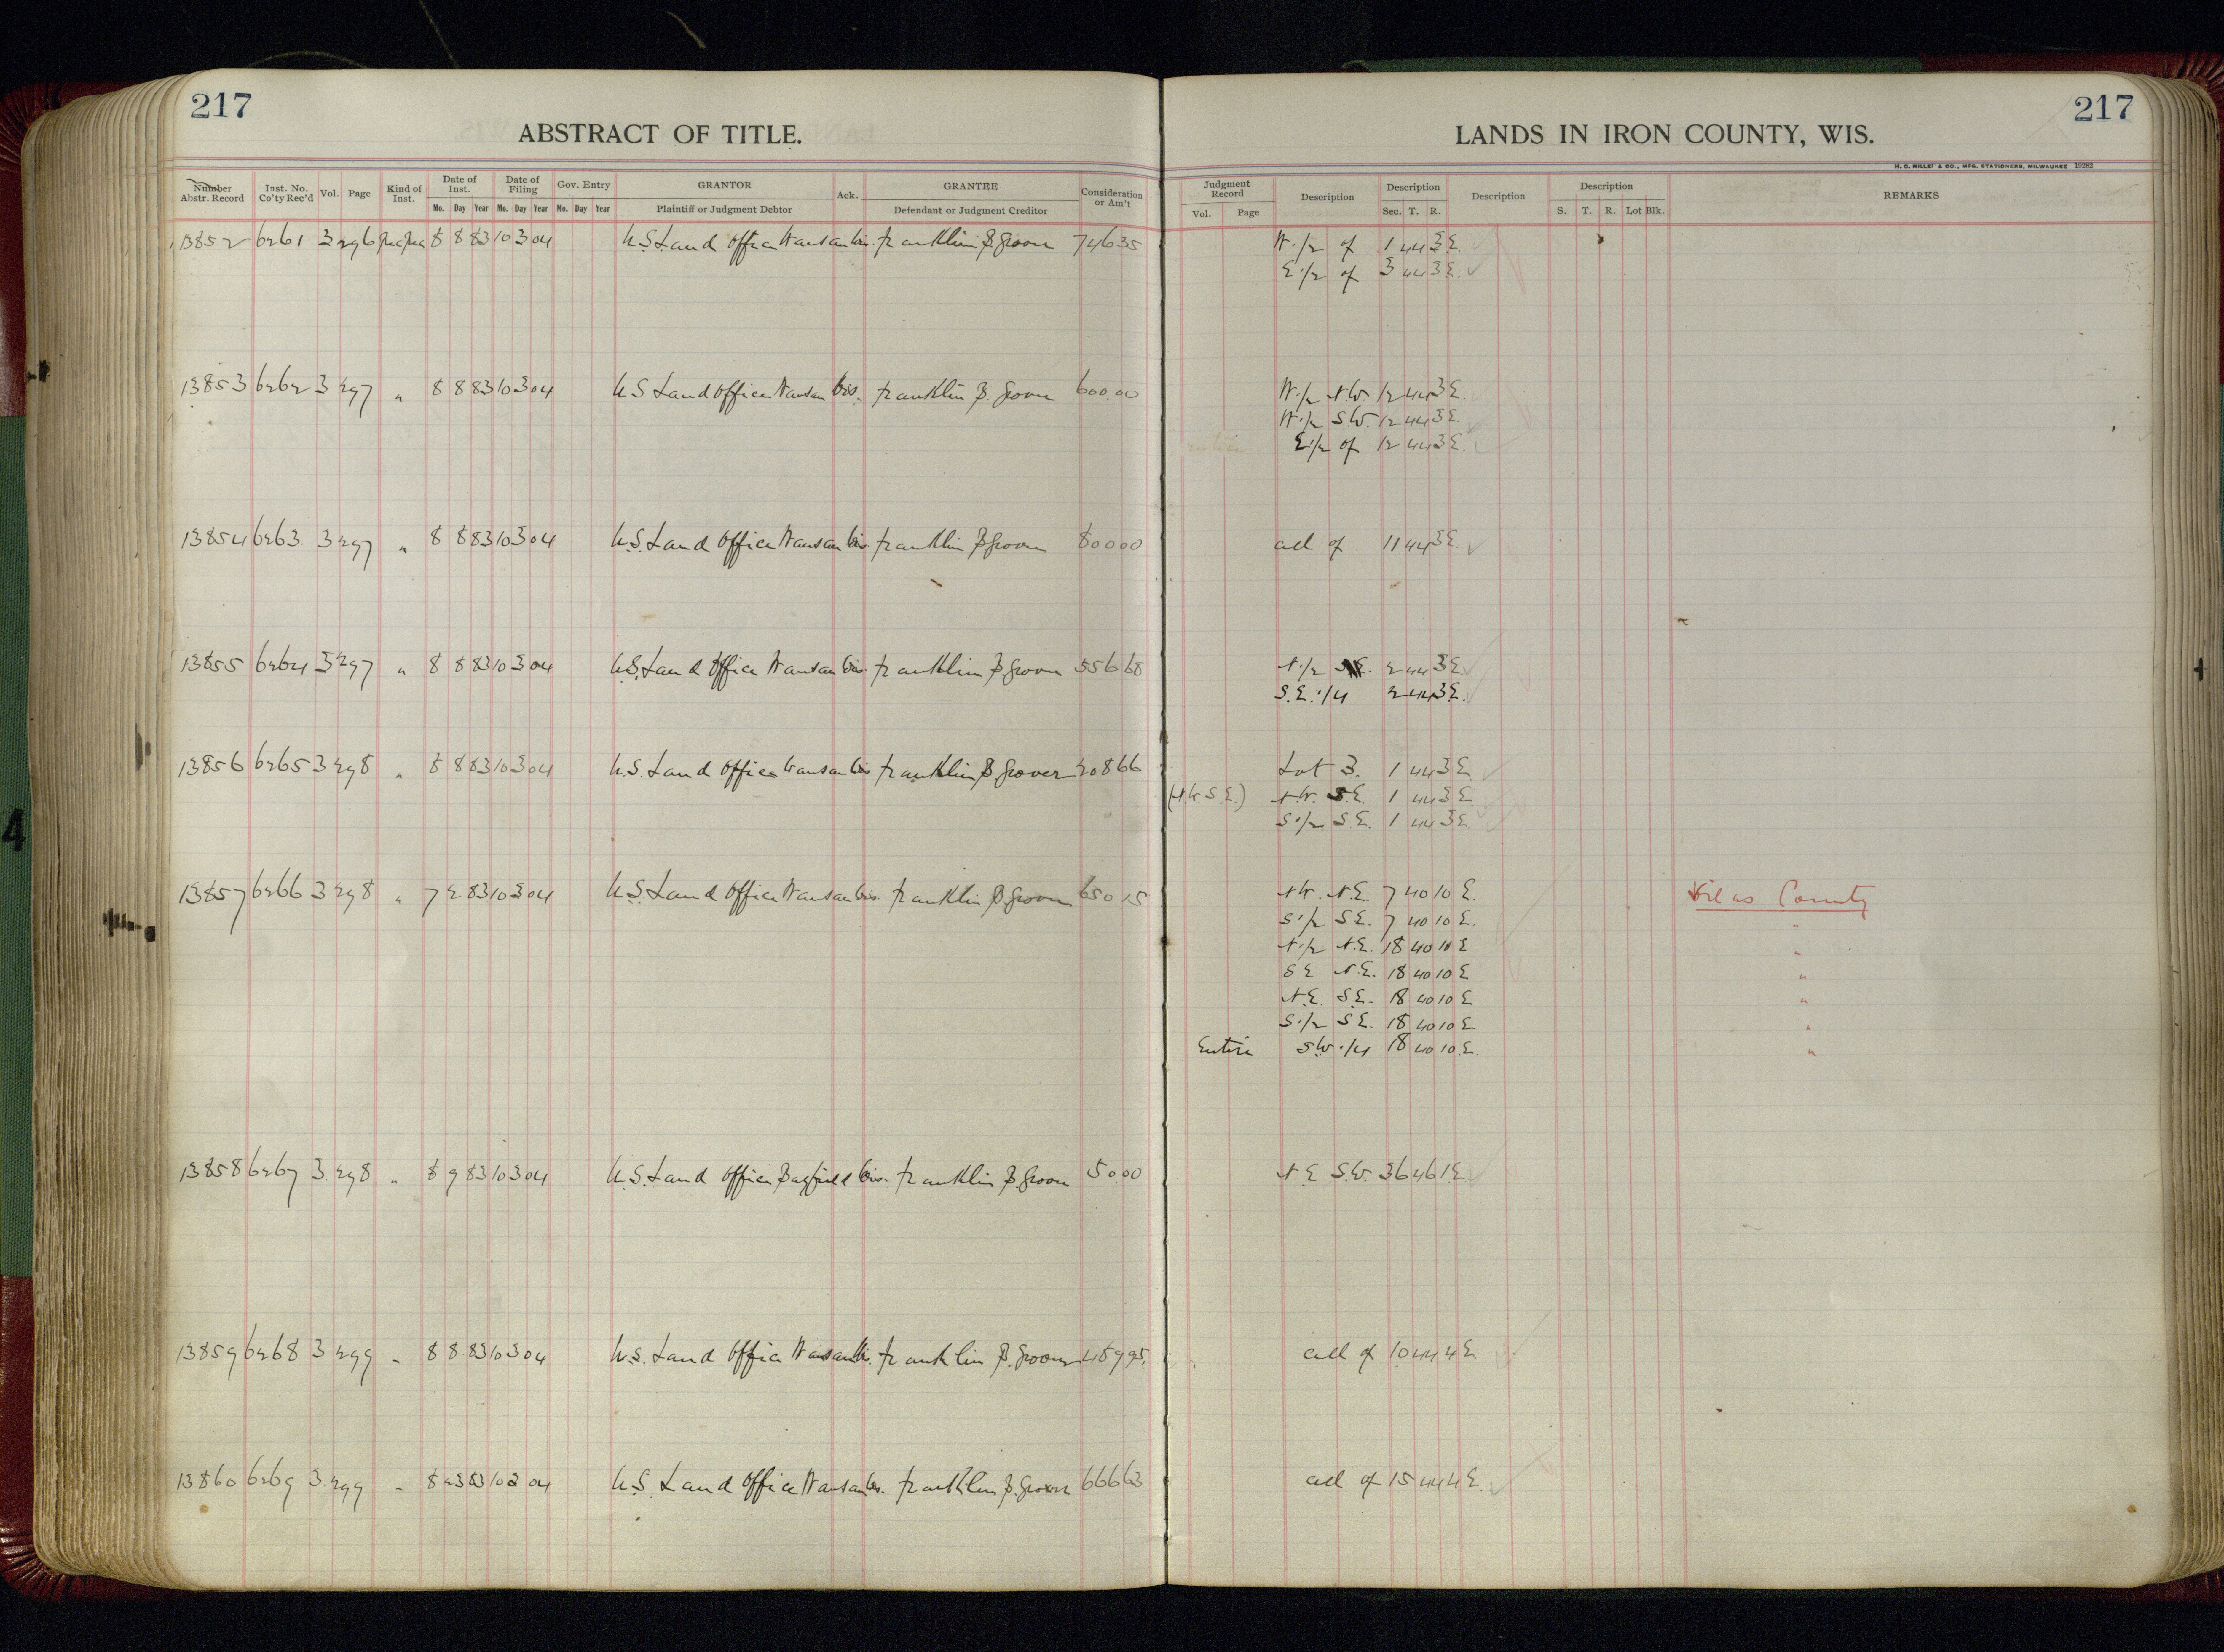 217
ABSTRACT OF TITLE.
LANDS IN IRON COUNTY, WIS.
217
H. C. MILLER & CO., MFG. STATIONERS, MILWAUKEE 19283
Number Abstr. Record Inst. No. Co'ty Rec'd Vol. Page Kind of Inst. Date of Inst. Mo. Day Year Date of Filing Mo. Day Year Gov. Entry Mo. Day Year GRANTOR Plaintiff or Judgment Debtor Ack. GRANTEE Defendant or Judgment Creditor Consideration or Am't Judgment Record Vol. Page Description Description Sec. T. R. Description Description S. T. R. Lot Blk. REMARKS
13852 6261 3 296 8 8 83 10 3 04 U.S. Land Office Wausau Wis. Franklin B. Grover 746 35 W. 1/2 of 1 44 3 E.
E. 1/2 of 3 44 3 E.
13853 6262 3 297 " 8 8 83 10 3 04 U.S Land Office Wausau Wis. Franklin B. Grover 600.00 W. 1/2 N.W. 12 44 3 E.
W. 1/2 S.W. 12 44 3 E.
E. 1/2 of 12 44 3 E.
13854 6263. 3 297 " 8 8 83 10 3 04 U.S. Land Office Wausau Wis. Franklin B Grover 800 00 all of 11 44 3 E.
13855 6264 3 297 " 8 8 83 10 3 04 U.S. Land Office Wausau Wis. Franklin B. Grover 556 68 N. 1/2 2 44 3 E.
S.E. 1/4 2 44 3 E.
13856 6265 3 298 " 8 8 83 10 3 04 U.S. Land Office Wausau Wis Franklin B Grover 208 66 Lot 3. 1 44 3 E.
(N.W. S.E.) N.W. S.E. 1 44 3 E
S. 1/2 S.E. 1 44 3 E
13857 6266 3 298 " 7 2 83 10 3 04 U.S. Land Office Wausau Wis. Franklin B Grover 650 15 N.W. N.E. 7 40 10 E. Vilas County
S. 1/2 S.E. 7 40 10 E. "
N. 1/2 N.E. 18 40 10 E "
S E N.E. 18 40 10 E "
N.E. S.E. 18 40 10 E "
S. 1/2 S.E. 18 40 10 E "
Entire S.W. 1/4 18 40 10 E. "
13858 6267 3. 298 " 8 9 83 10 3 04 U.S. Land Office Bayfield Wis. Franklin B. Grover 50.00 N.E S.W. 36 46 1 E.
13859 6268 3 299 " 8 8 83 10 3 04 U.S. Land Office Wausau Wis. Franklin B. Grover 489 95. all of 10 44 4 E
13860 6269 3. 299 " 8 23 83 10 3 04 U.S. Land Office Wausau Wis. Franklin B. Grover 666 63 all of 15 44 4 E.
4